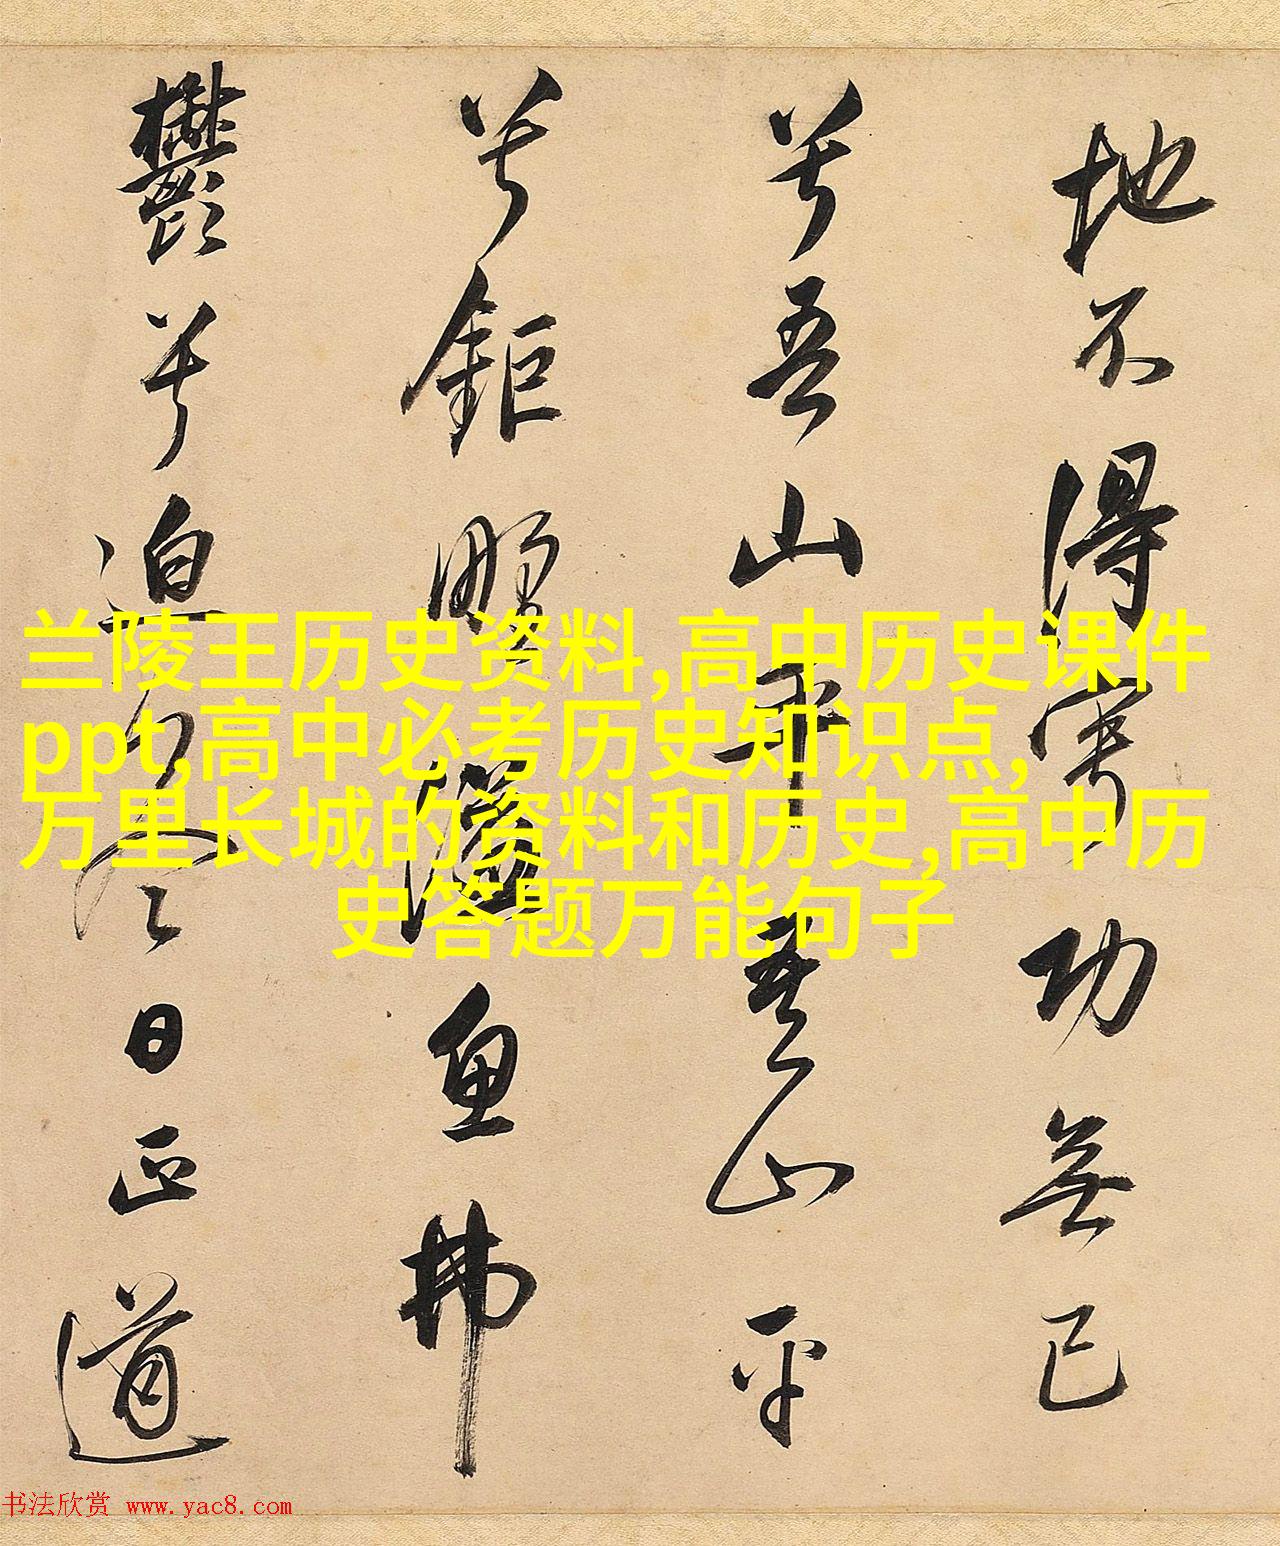 地不得寧功無已
兮吾山平吾山平
兮鉅野溢魚拂
鬱兮迫冬日正道
兰陵王历史资料,高中历史课件
ppt,高中必考历史知识点,
万里长城的资料和历史,高中历
史答题万能句子
书法欣赏 www.yac8.com